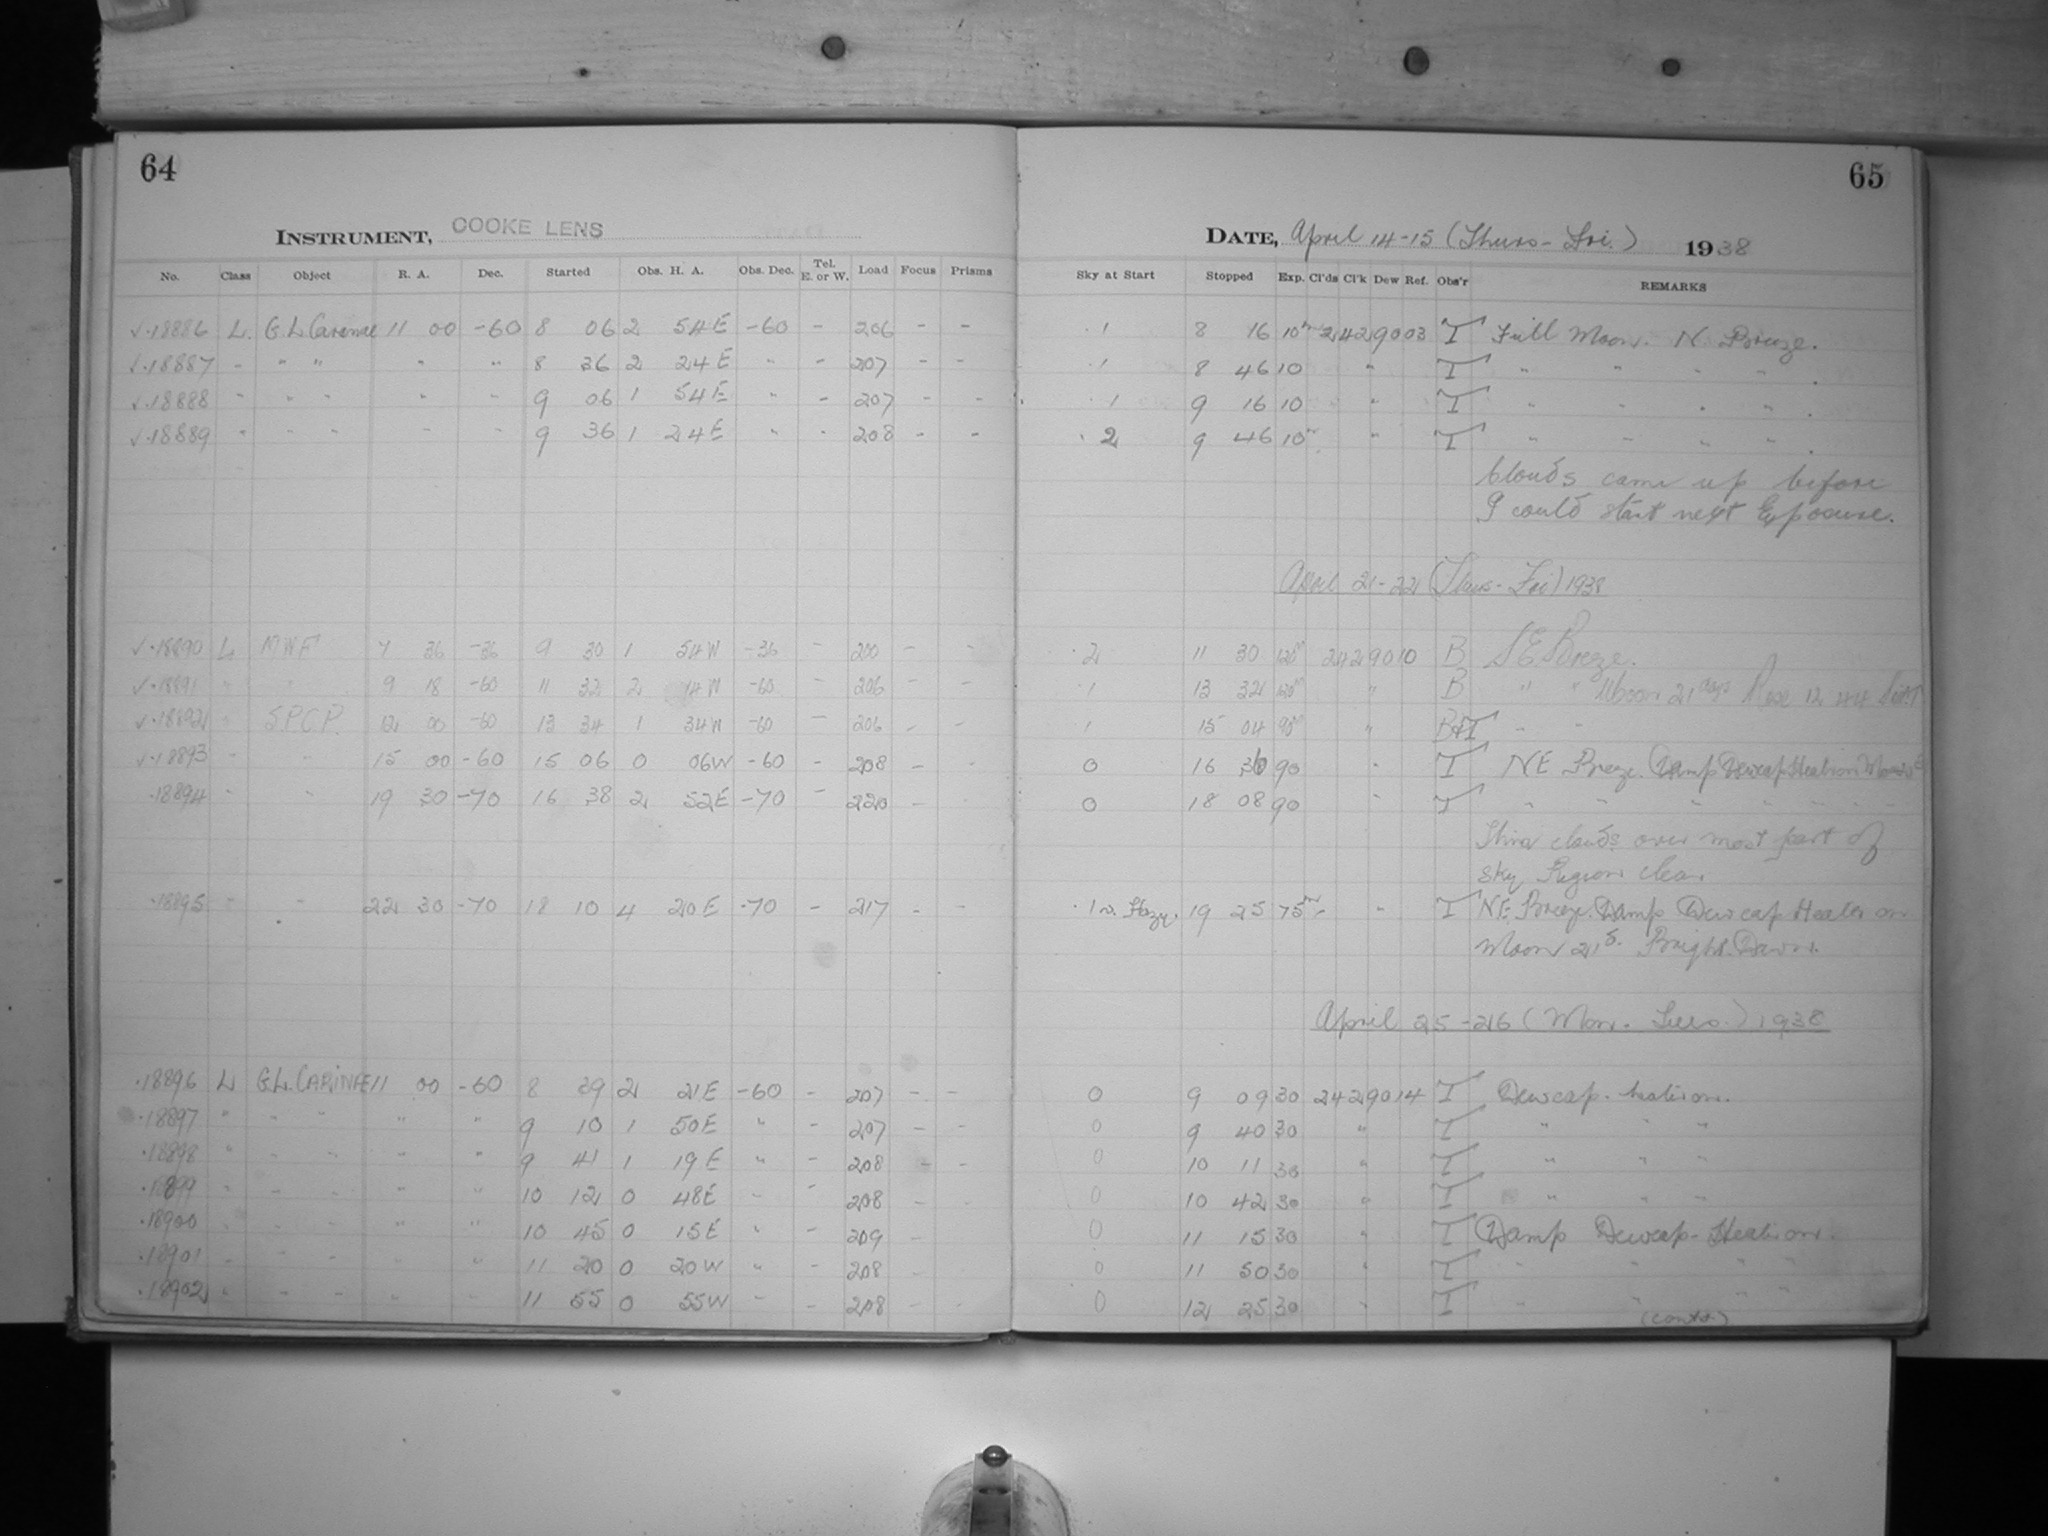 64
65
INSTRUMENT, COOKE LENS
DATE, April 14-15 (Thurs - Fri.) 1938
No. Class Object R. A. Dec. Started Obs. H. A. Obs. Dec. Tel. E. or W. Load Focus Prisms Sky at Start Stopped Exp. Cl'ds Cl'k Dew Ref. Obs'r REMARKS
✓·18886 L. G.L. Carinae 11 00 -60 8 06 2 54E -60 - 206 - - 1 8 16 10m 2429003 T Full Moon. N. Breeze.
✓·18887 - " " " " 8 36 2 24E " - 207 - - 1 8 46 10 " T " " " "
✓·18888 " " " " " 9 06 1 54E " - 207 - - 1 9 16 10 " T " " " "
✓·18889 " " " " " 9 36 1 24E " - 208 - - 2 9 46 10m " T " " " "
Clouds came up before
I could start next Exposure.
April 21-22 (Thurs - Fri) 1938
✓·18890 L MWF 7 36 -36 9 30 1 54W -36 - 200 - - 2 11 30 120m 2429010 B S E Breeze.
✓·18891 " " 9 18 -60 11 32 2 14W -60 - 206 - - 1 13 32 120m " B " " Moon 21 days Rise 12 44
✓·18892 " S.P.C.P. 12 00 -60 13 34 1 34W -60 - 206 - - 1 15 04 90m " B&T " "
✓·18893 - " 15 00 -60 15 06 0 06W -60 - 208 - - 0 16 36 90 " T NE Breeze. Damp Dewcap Heat on Moon
·18894 " " 19 30 -70 16 38 2 52E -70 - 220 - - 0 18 08 90 " T " " " " " "
Thin clouds over most part of
sky Region clear
·18895 - " 22 30 -70 18 10 4 20E -70 - 217 - - 1 v. Hazy. 19 25 75m - " T N.E. Breeze. Damp Dewcap Heater on
Moon 21d. Bright Dawn.
April 25-26 (Mon. Tues.) 1938
·18896 L G.L. CARINAE 11 00 -60 8 39 2 21E -60 - 207 - - 0 9 09 30 2429014 T Dewcap heat on.
·18897 " " " " " 9 10 1 50E " - 207 - - 0 9 40 30 " T " " "
·18898 " " " " " 9 41 1 19E " - 208 - - 0 10 11 30 " T " " "
·18899 " " " " " 10 12 0 48E " - 208 - - 0 10 42 30 " T " " "
·18900 " " " " " 10 45 0 15E " - 209 - - 0 11 15 30 " T Damp Dewcap - Heat on.
·18901 " " " " " 11 20 0 20W " - 208 - - 0 11 50 30 " T " " " "
·18902 " " " " " 11 55 0 55W " - 208 - - 0 12 25 30 " T " " " "
(contd.)